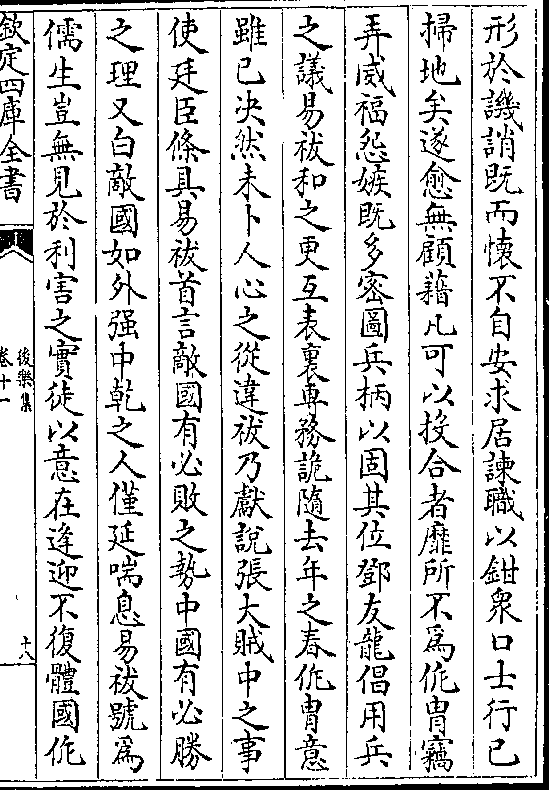 形於譏誚既而懷不自安求居諫職以鉗衆口士行已
掃地矣遂愈無顧藉凡可以投合者靡所不為侂胄竊
弄威福怨嫉既多密圖兵柄以固其位鄧友龍倡用兵
之議易祓和之更互表裏專務詭隨去年之春侂胄意
雖已決然未卜人心之從違祓乃獻說張大賊中之事
使廷臣條具易祓首言敵國有必敗之勢中國有必勝
之理又白敵國如外强中乾之人僅延喘息易祓號為
儒生豈無見於利害之實徒以意在逢迎不復體國侂
欽定四庫全書
後樂集
卷十一
十八